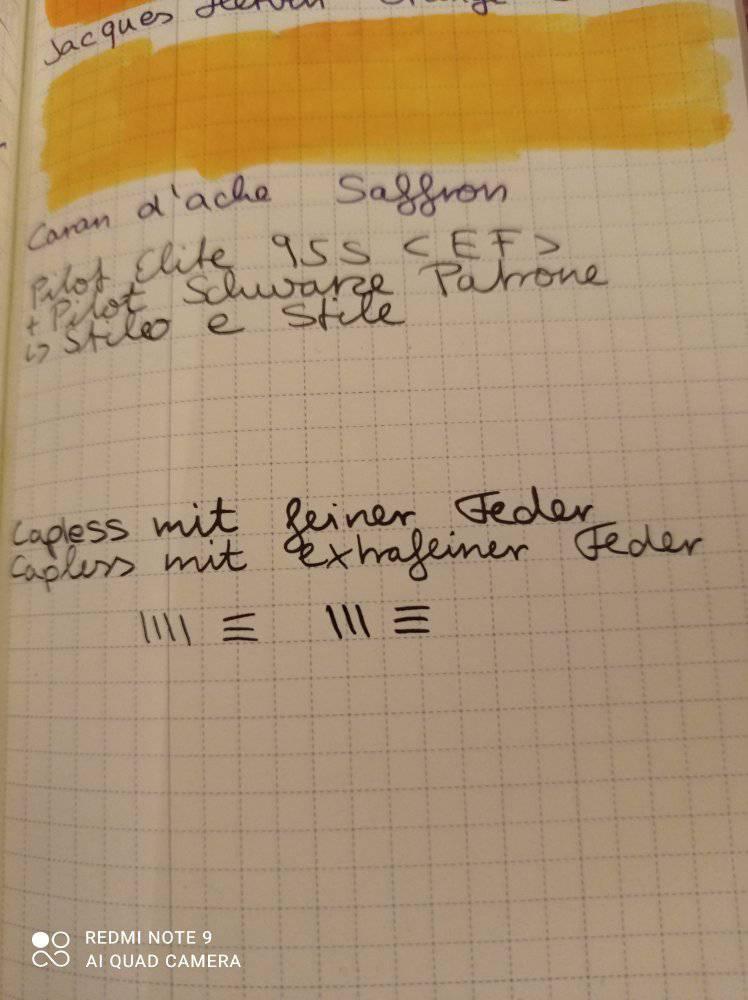 Jacques Herbin Orange
Caran d'ache Saffron
Pilot Elite 95S <EF>
+ Pilot Schwarze Patrone
↳ Stilo e Stile
Capless mit feiner Feder
Capless mit extrafeiner Feder
REDMI NOTE 9
AI QUAD CAMERA